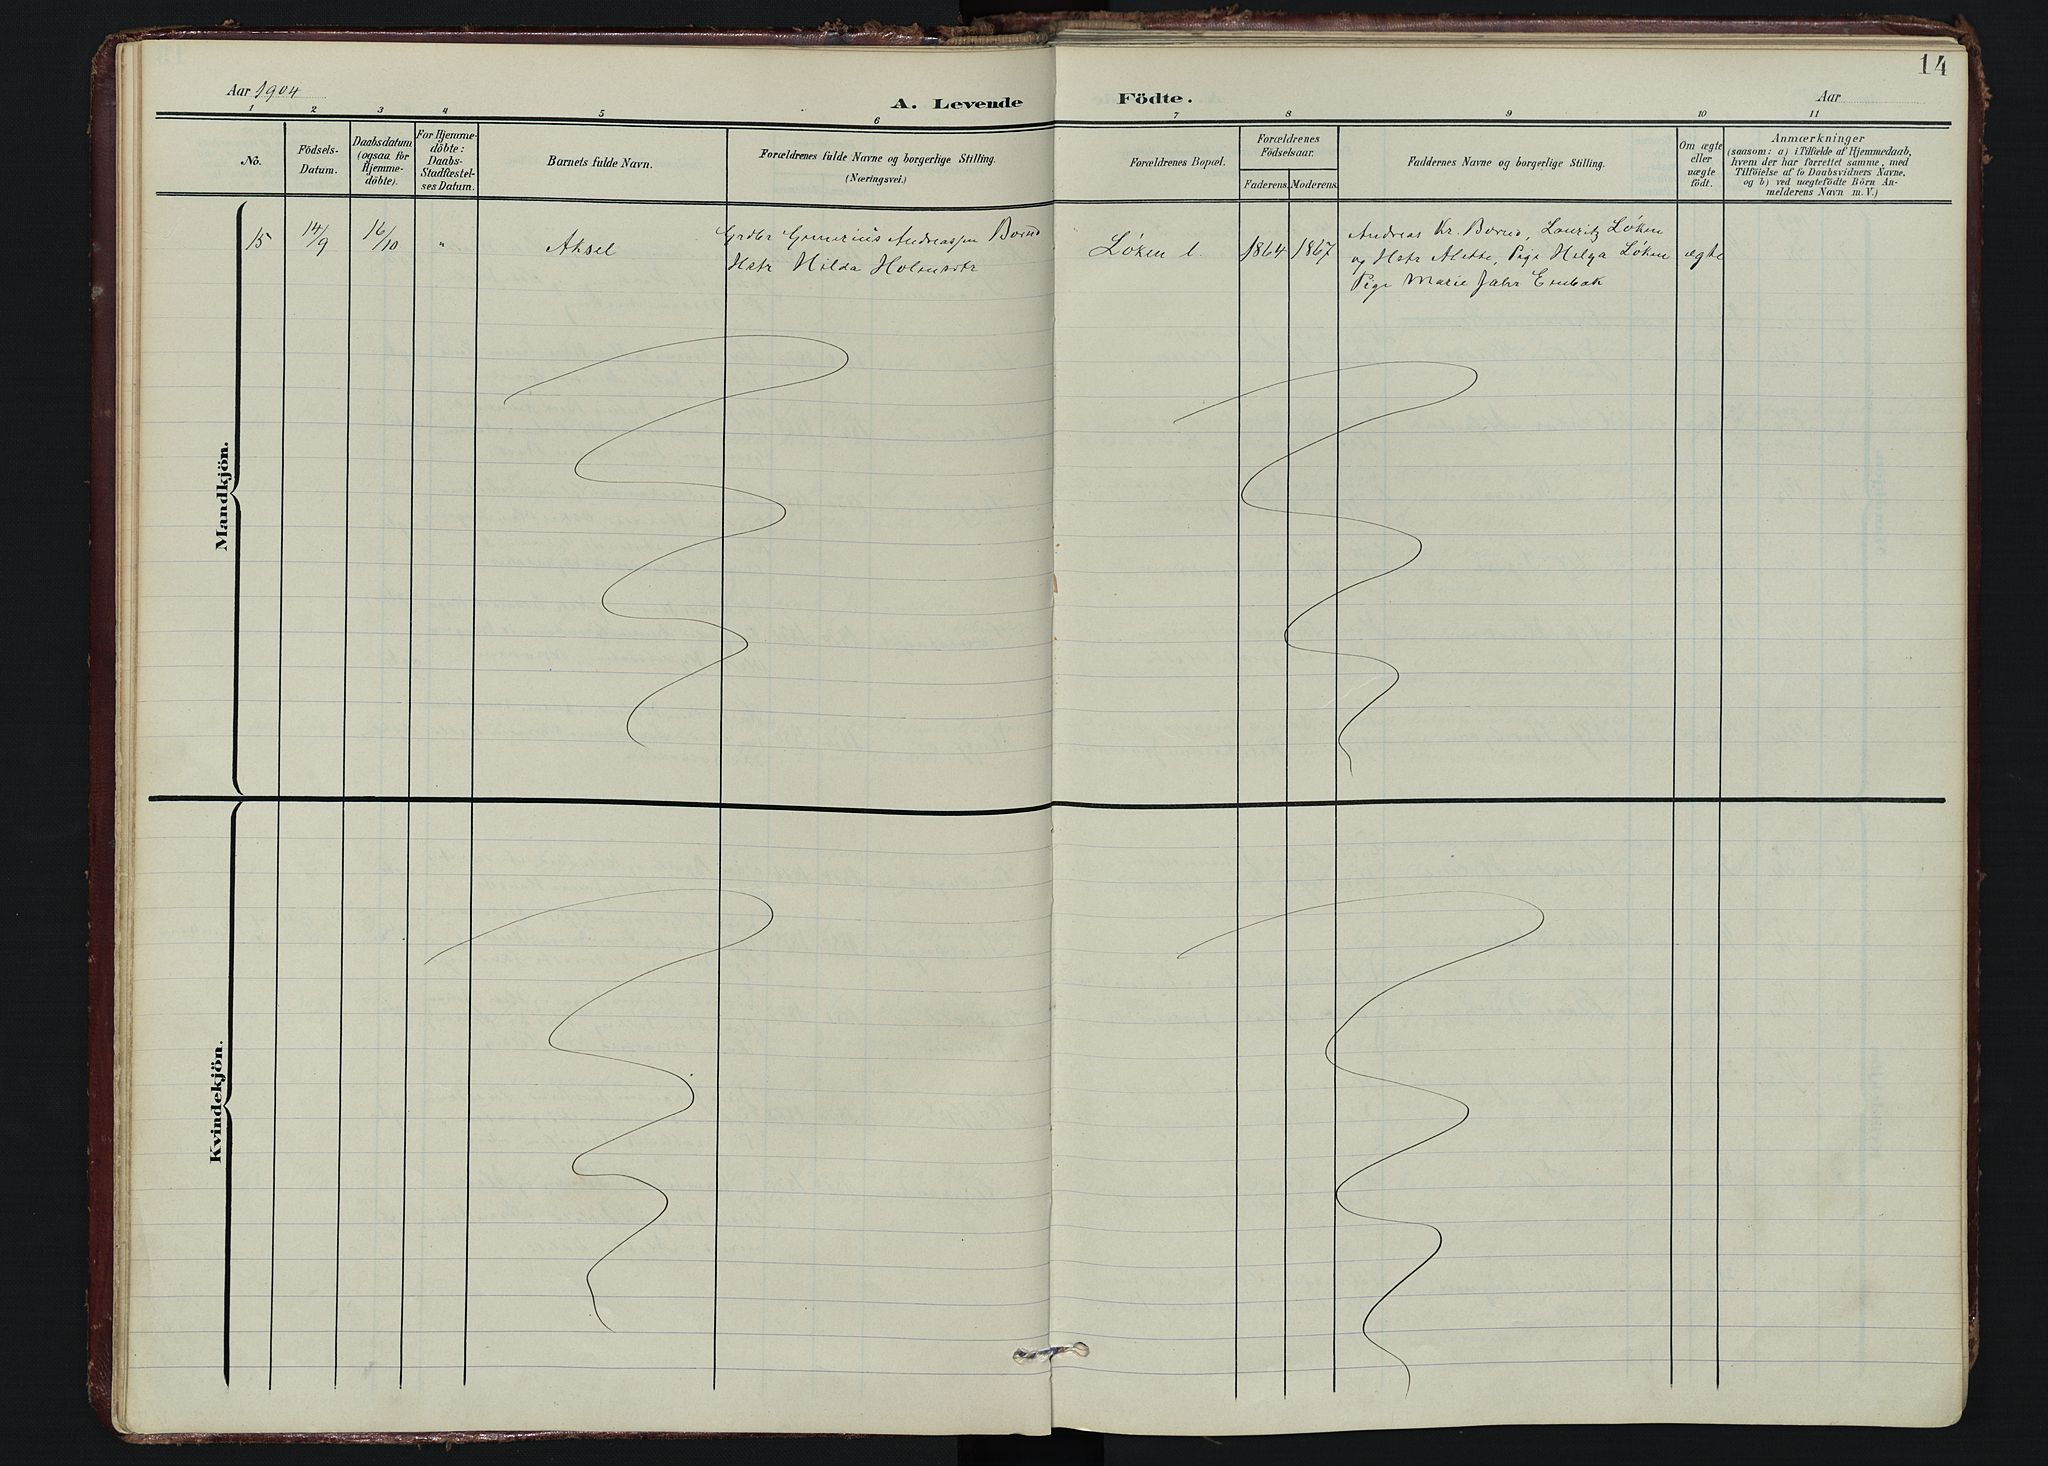 14
Aar 1904
A. Levende Födte.
Aar
1 2 3 4 5 6 7 8 9 10 11
No.
Födsels-
Datum.
Daabsdatum
(ogsaa for
Hjemme-
döbte).
For Hjemme-
döbte:
Daabs-
Stadfæstel-
ses Datum.
Barnets fulde Navn.
Forældrenes fulde Navne og borgerlige Stilling.
(Næringsvei.)
Forældrenes Bopæl.
Forældrenes
Födselsaar.
Faderens. Moderens.
Faddernes Navne og borgerlige Stilling.
Om ægte
eller
uægte
födt.
Anmærkninger
(saasom: a) i Tilfælde af Hjemmedaab,
hvem der har forrettet samme, med
Tilföielse af to Daabsvidners Navne,
og b) ved uægtefödte Börn An-
melderens Navn m. V.)
Mandkjön.
15
14/9
16/10
"
Aksel
Grdbr Gunerius Andreassen
Hstr Hilda
Løken l.
1864
1867
Andreas Kr. Lauritz Løken
og Hstr Alette, Pige Helga Løken
Pige Marie Jahr
ægte
Kvindekjön.